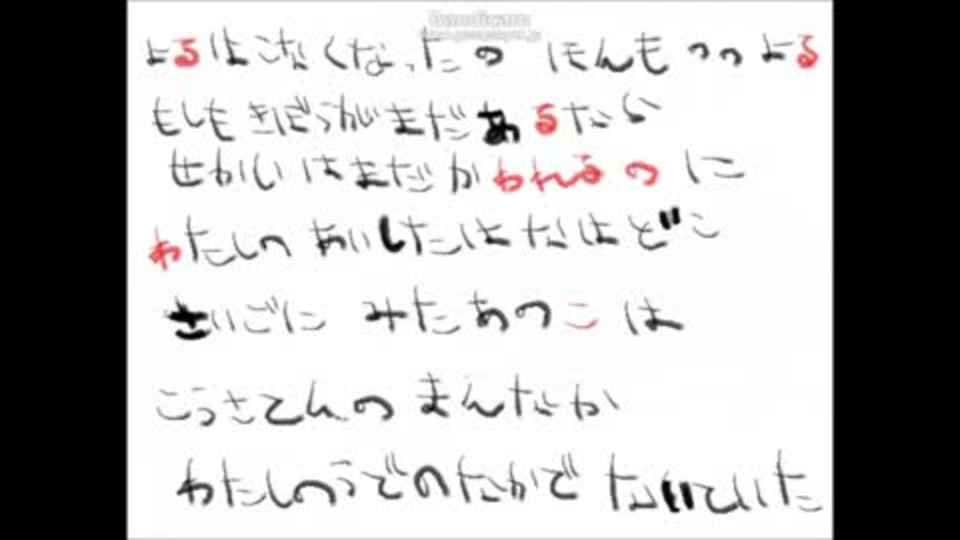 Bandicam
よるはこなくなったの ほんもののよる
もしも きぼうがまだあるなら
せかいはまだかわれるのに
わたしの あいしたはなはどこ
さいごに みたあのこは
こうさてんの まんなか
わたしのうでのなかで ないていた